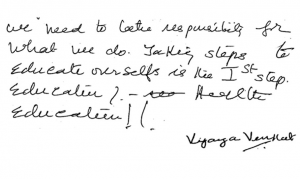 we need to take responsibility for
what we do. Taking steps to
educate ourselfs is the 1st step.
Education? - Health
Education!!
Vijaya Venkat